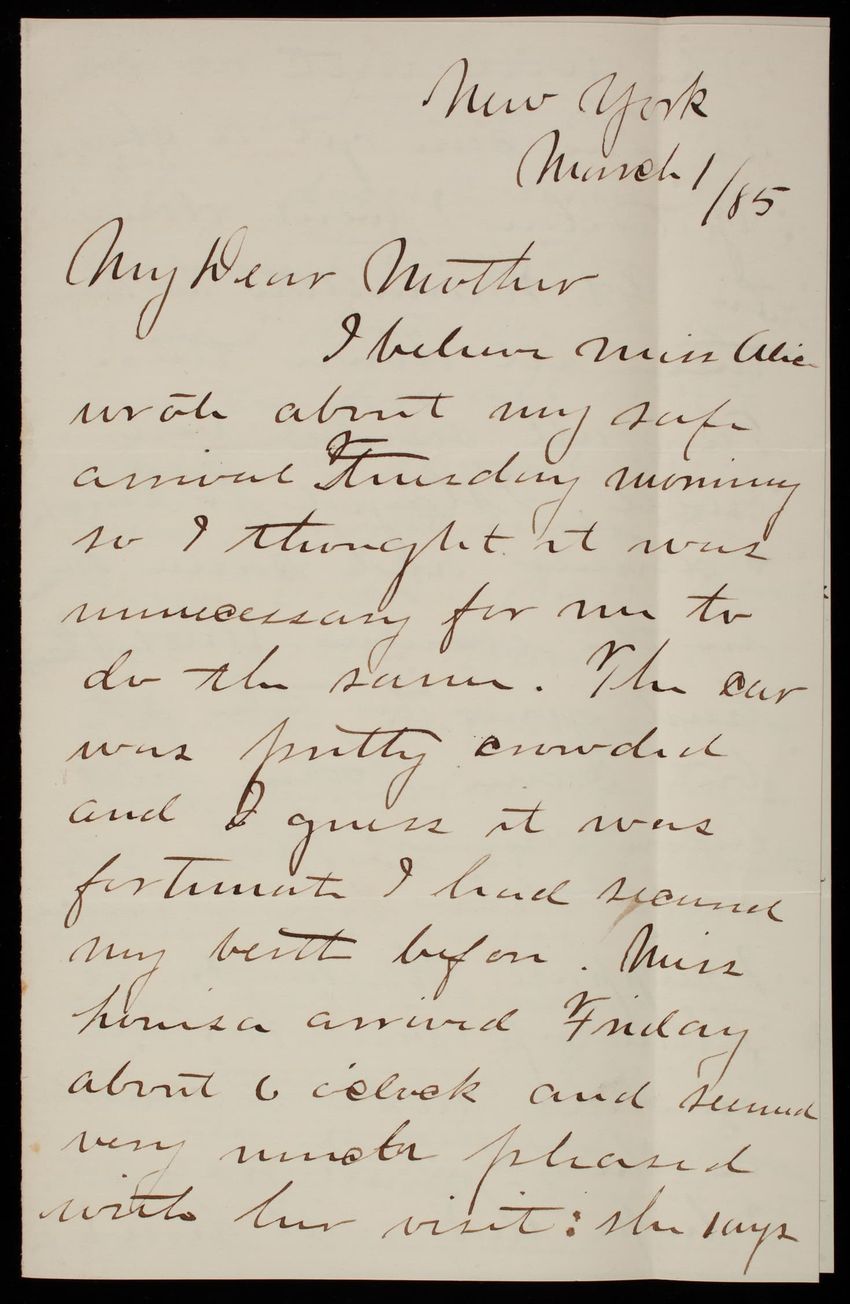 New York
March 1/85
My Dear Mother
I believe miss Alice
wrote about my safe
arrival Tuesday morning
so I thought it was
unnecessary for me to
do the same. The car
was pretty crowded
and I guess it was
fortunate I had secured
my berth before. Miss
Louisa arrived Friday
about 6 o'clock and seemed
very much pleased
with her visit: she says